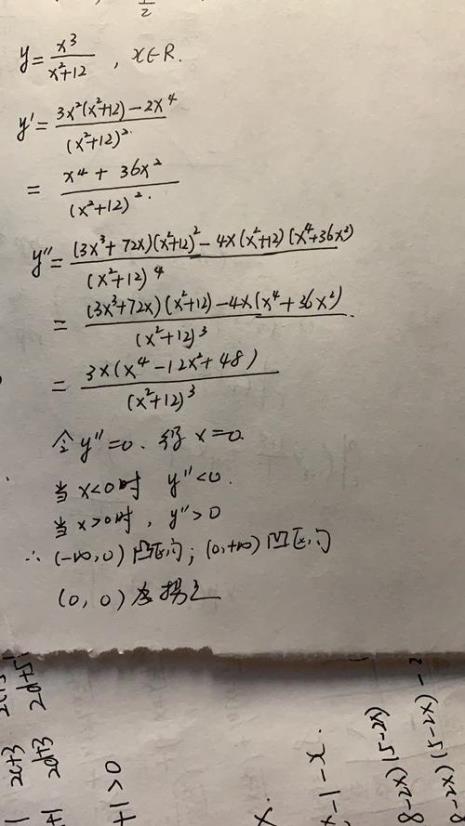 1/2
y = x³/(x²+12) , x∈R.
y' = (3x²(x²+12) - 2x⁴)/(x²+12)².
= (x⁴ + 36x²)/(x²+12)².
y'' = ((3x³+72x)(x²+12)² - 4x(x²+12)(x⁴+36x²))/(x²+12)⁴
= ((3x³+72x)(x²+12) - 4x(x⁴+36x²))/(x²+12)³.
= 3x(x⁴-12x²+48)/(x²+12)³
令y''=0. 得x=0.
当x<0时 y''<0.
当x>0时, y''>0
∴ (-∞,0) 凸区间; (0,+∞) 凹区间
(0, 0) 为拐点
+1>0
x.
x-1-x.
8-2x)(5-2x)
8-2x)(5-2x)-